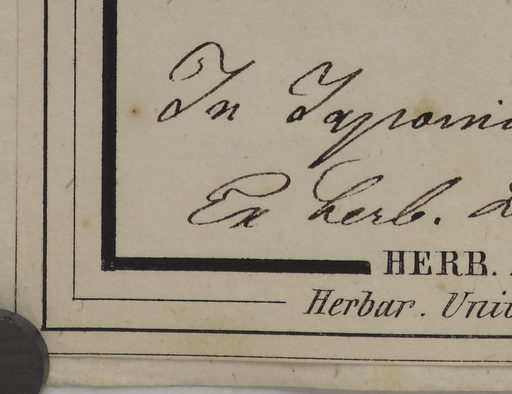 In Japoni
Ex herb. 
HERB.
Herbar. Univ